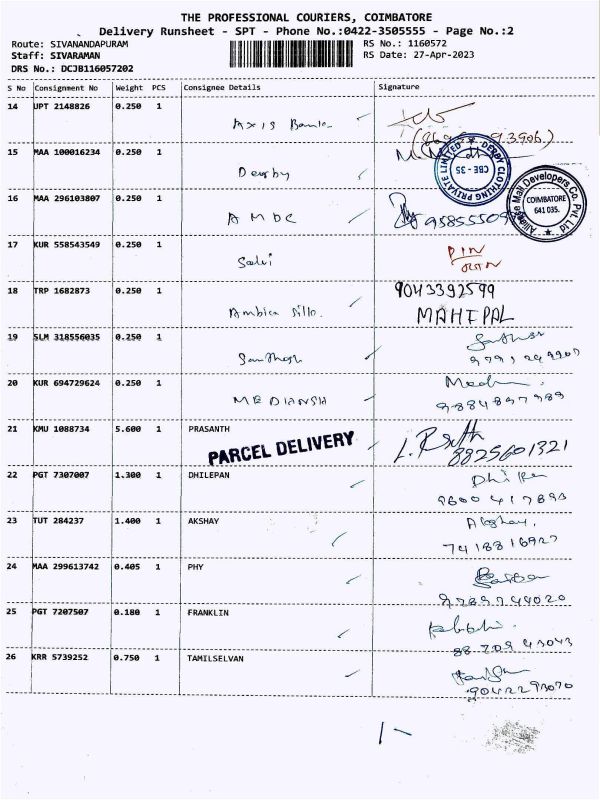 THE PROFESSIONAL COURIERS, COIMBATORE
Delivery Runsheet - SPT - Phone No.:0422-3505555 - Page No.:2
Route: SIVANANDAPURAM
RS No.: 1160572
Staff: SIVARAMAN
RS Date: 27-Apr-2023
DRS No.: DCJB116057202
S No Consignment No Weight PCS Consignee Details Signature
14 UPT 2148826 0.250 1 Axis Bank
15 MAA 100016234 0.250 1 Derby
DERBY CLOTHING PRIVATE LIMITED
CBE - 35
16 MAA 296103807 0.250 1 AMDC
Alliance Mall Developers Co. Pvt. Ltd
COIMBATORE
641 035.
17 KUR 558543549 0.250 1 Selvi
18 TRP 1682873 0.250 1 Ambica 9043392599
MAHIPAL
19 SLM 318556035 0.250 1 Santhosh
20 KUR 694729624 0.250 1 9884897989
21 KMU 1088734 5.600 1 PRASANTH
PARCEL DELIVERY
8825601321
22 PGT 7307007 1.300 1 DHILEPAN
23 TUT 284237 1.400 1 AKSHAY Akshay.
7418816927
24 MAA 299613742 0.405 1 PHY
9789744020
25 PGT 7207507 0.180 1 FRANKLIN
26 KRR 5739252 0.750 1 TAMILSELVAN
9042293070